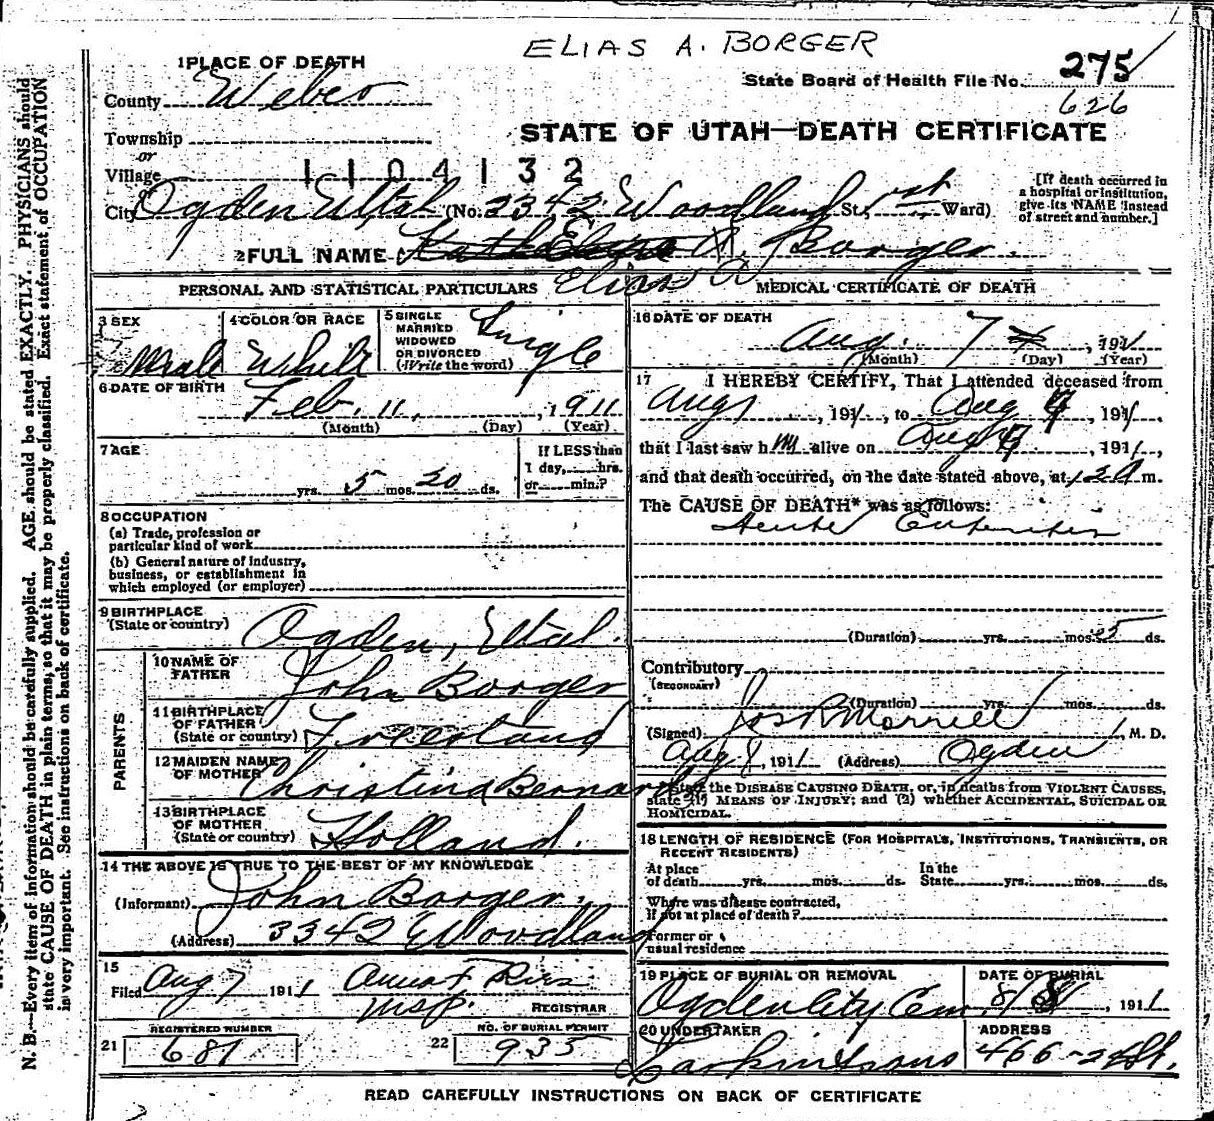 ELIAS A. BORGER
1 PLACE OF DEATH
County Weber
State Board of Health File No. 275
626
Township
or
Village
STATE OF UTAH—DEATH CERTIFICATE
1104132
or
City Ogden Utah (No. 3342 Woodland St., 1st Ward)
[If death occurred in
a hospital or institution,
give its NAME instead
of street and number.]
2 FULL NAME A. Borger
Elias A
PERSONAL AND STATISTICAL PARTICULARS
3 SEX
Male
4 COLOR OR RACE
White
5 SINGLE
MARRIED
WIDOWED
OR DIVORCED
(Write the word)
Single
6 DATE OF BIRTH
Feb. 11, , 1911
(Month) (Day) (Year)
7 AGE
yrs. 5 mos. 20 ds.
If LESS than
1 day, hrs.
or min.?
8 OCCUPATION
(a) Trade, profession or
particular kind of work
(b) General nature of industry,
business, or establishment in
which employed (or employer)
9 BIRTHPLACE
(State or country)
Ogden, Utah.
PARENTS
10 NAME OF
FATHER
John Borger
11 BIRTHPLACE
OF FATHER
(State or country)
12 MAIDEN NAME
OF MOTHER
Christina Bernards
13 BIRTHPLACE
OF MOTHER
(State or country)
Holland.
14 THE ABOVE IS TRUE TO THE BEST OF MY KNOWLEDGE
(Informant) John Borger.
(Address) 3342 Woodland
15
Filed Aug 7 1911
REGISTRAR
REGISTERED NUMBER
21 681
NO. OF BURIAL PERMIT
22 935
MEDICAL CERTIFICATE OF DEATH
16 DATE OF DEATH
Aug. 7 , 1911
(Month) (Day) (Year)
17 I HEREBY CERTIFY, That I attended deceased from
Aug 1 , 1911, to Aug 7 , 1911,
that I last saw him alive on Aug 7 , 1911,
and that death occurred, on the date stated above, at m.
The CAUSE OF DEATH* was as follows:
Acute Enteritis
(Duration) yrs. mos. 5 ds.
Contributory
(SECONDARY)
(Duration) yrs. mos. ds.
(Signed) Jos R Morrell, M. D.
Aug 8, 1911 (Address) Ogden
*State the DISEASE CAUSING DEATH, or, in deaths from VIOLENT CAUSES,
state (1) MEANS OF INJURY; and (2) whether ACCIDENTAL, SUICIDAL OR
HOMICIDAL.
18 LENGTH OF RESIDENCE (FOR HOSPITALS, INSTITUTIONS, TRANSIENTS, OR
RECENT RESIDENTS)
At place
of death yrs. mos. ds.
In the
State yrs. mos. ds.
Where was disease contracted,
If not at place of death?
Former or
usual residence
19 PLACE OF BURIAL OR REMOVAL
Ogden City Cem.
DATE OF BURIAL
8/8, 1911
20 UNDERTAKER
Larkin & Sons
ADDRESS
466-24 St.
READ CAREFULLY INSTRUCTIONS ON BACK OF CERTIFICATE
N. B.—Every item of information should be carefully supplied. AGE should be stated EXACTLY. PHYSICIANS should
state CAUSE OF DEATH in plain terms, so that it may be properly classified. Exact statement of OCCUPATION
is very important. See instructions on back of certificate.